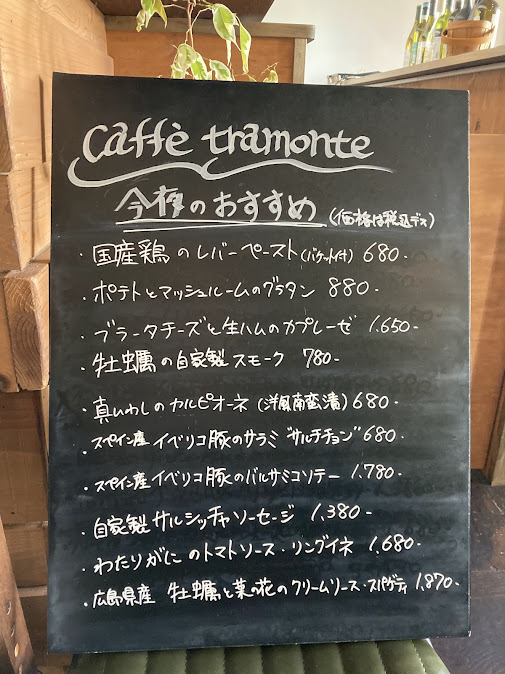 Caffè tramonte
今夜のおすすめ (価格は税込デス)
・国産鶏のレバーペースト(バケット付) 680-
・ポテトとマッシュルームのグラタン 880-
・ブラータチーズと生ハムのカプレーゼ 1.650-
・牡蠣の自家製スモーク 780-
・真いわしのカルピオーネ (洋風南蛮漬) 680-
・スペイン産 イベリコ豚のサラミ "サルチチョン" 680-
・スペイン産 イベリコ豚のバルサミコソテー 1.780-
・自家製サルシッチャソーセージ 1.380-
・わたりがにのトマトソース・リングイネ 1.680-
・広島県産 牡蠣と菜の花のクリームソース・スパゲティ 1.870-